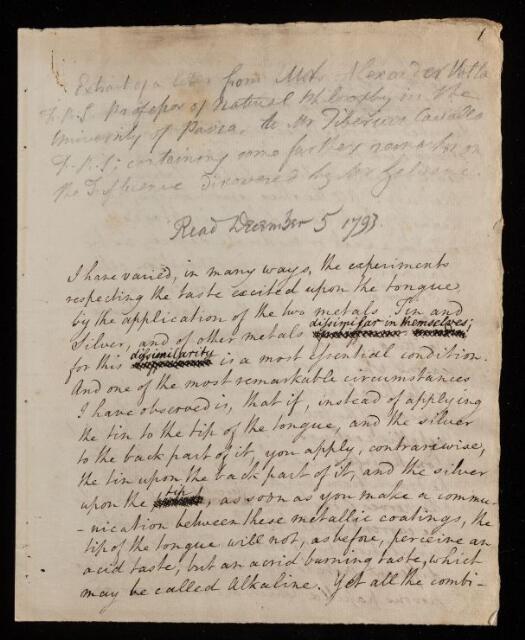 1
Extract of a letter from Mr. Alexander Volta
F.R.S. Professor of Natural Philosophy in the
University of Pavia, to Mr Tiberius Cavallo
F.R.S; containing some further remarks on
the Influence discovered by Mr Galvani.
Read December 5 1793.
I have varied, in many ways, the experiments
respecting the taste excited upon the tongue
by the application of the two metals Tin and
Silver, and of other metals dissimilar in themselves;
for this dissimilarity is a most essential condition.
And one of the most remarkable circumstances
I have observed is, that if, instead of applying
the tin to the tip of the tongue, and the silver
to the back part of it, you apply, contrariwise,
the tin upon the back part of it, and the silver
upon the tip, as soon as you make a commu-
-nication between these metallic coatings, the
tip of the tongue will not, as before, perceive an
acid taste, but an acrid burning taste, which
may be called Alkaline. Yet all the combi-